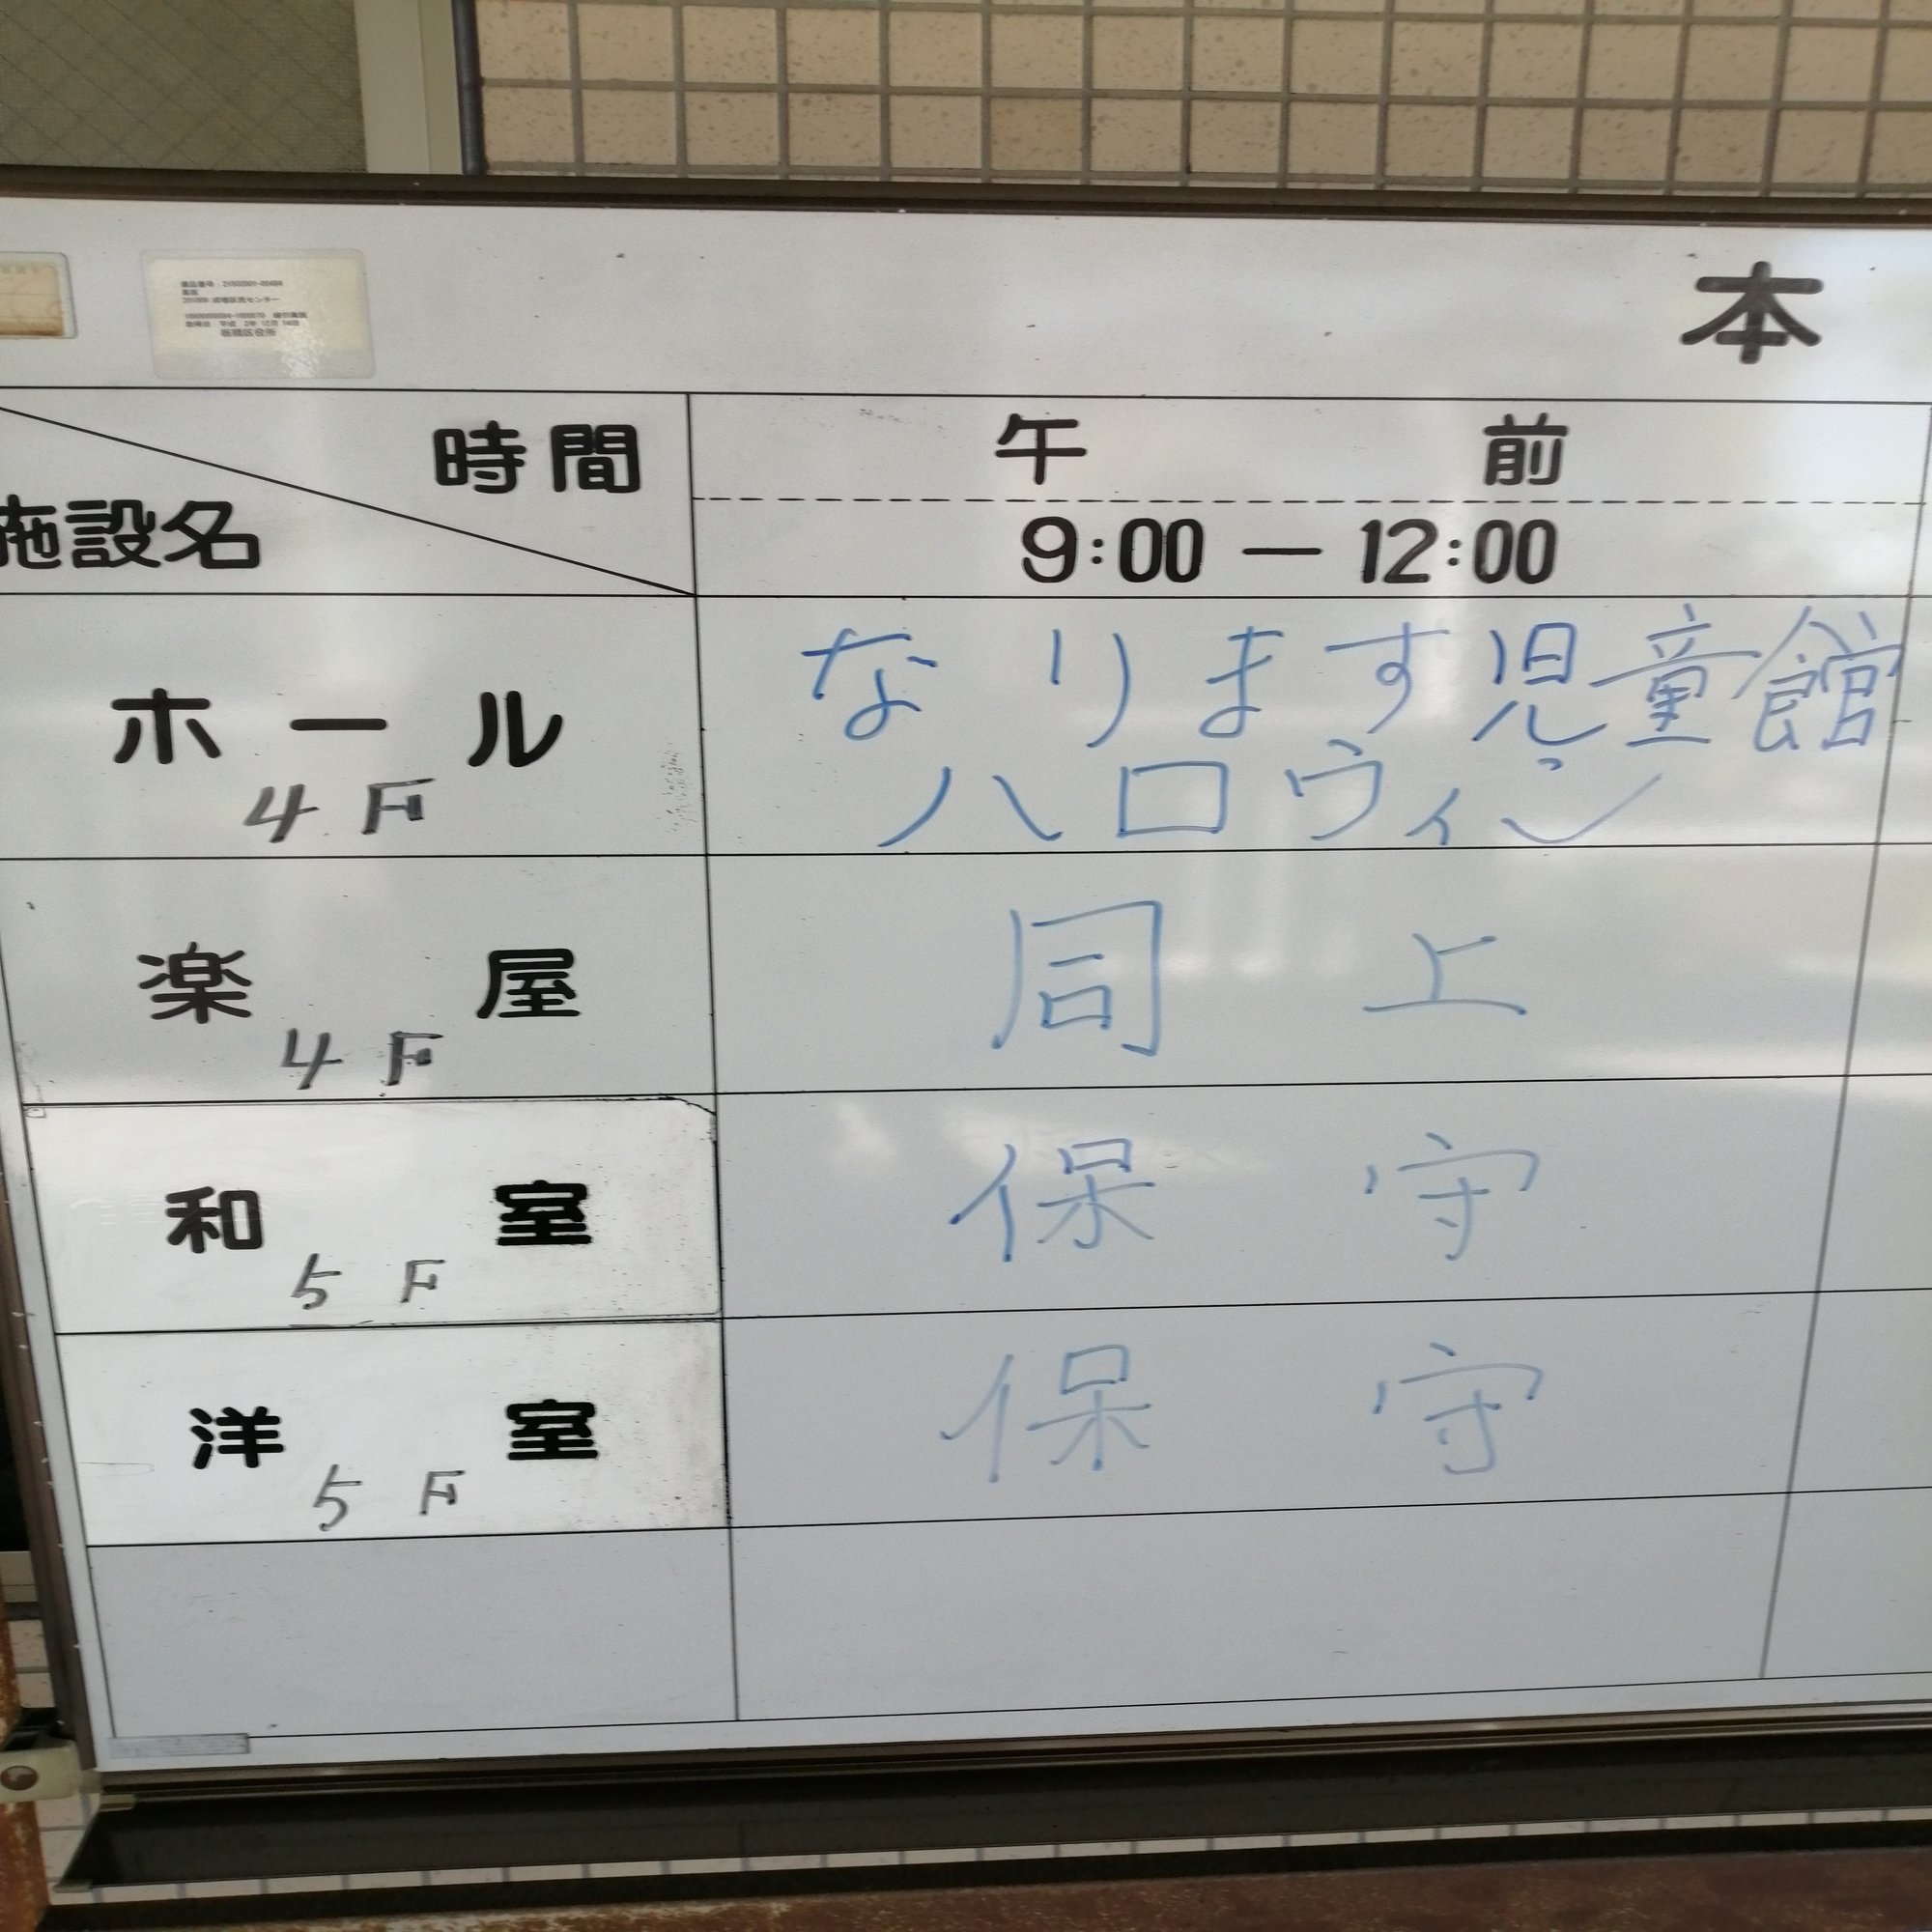 本
時間
施設名
午前
9:00 — 12:00
ホール
4F
なります児童館
ハロウィン
楽屋
4F
同上
和室
5F
保守
洋室
5F
保守
板橋区役所